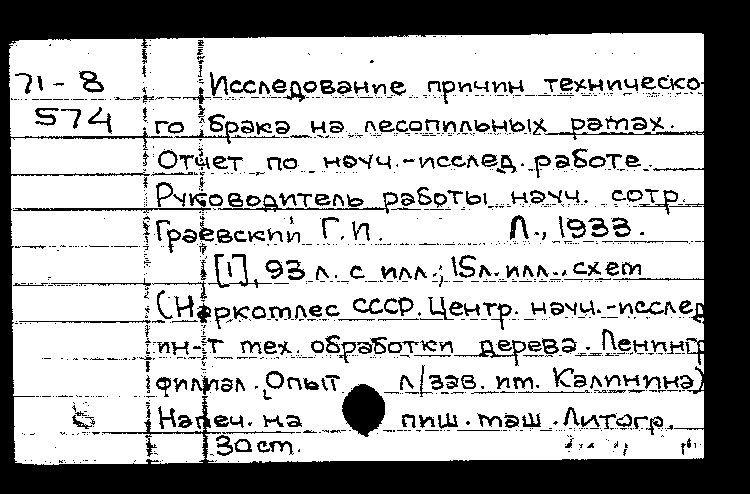 71-8 Исследование причин техническо-
574 го брака на лесопильных рамах.
Отчет по науч.-исслед. работе.
Руководитель работы науч. сотр.
Граевский Г.И. Л., 1933.
[1], 93 л. с илл.; 15л. илл., схем
(Наркомлес СССР. Центр. науч.-исслед
ин-т мех. обработки дерева. Ленингр
филиал. Опыт л/зав. им. Калинина)
Б Напеч. на пиш. маш. Литогр.
30 см.